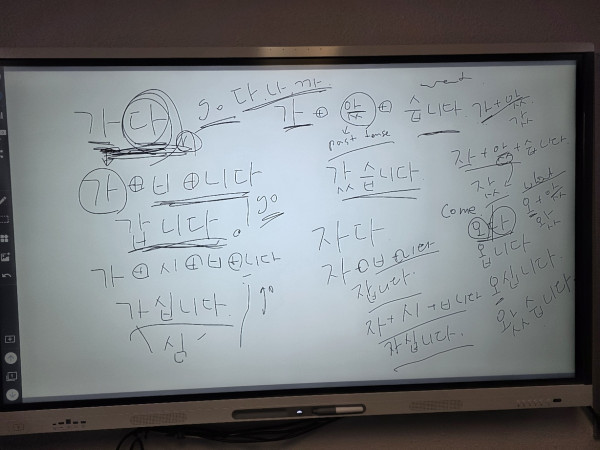 가다
go 다. 나. 까
가 + ㅂ + 니다
갑니다.
go
가 + 시 + ㅂ + 니다
가십니다.
go
십
가 + 았 + 습니다.
past tense
갔습니다
자다
자 + ㅂ + 니다
잡니다.
자 + 시 + ㅂ니다
자십니다.
가 + 았
갔
자 + 았 + 습니다
잤
Come.
오다
오 + 았
왔
옵니다
오십니다.
왔습니다.